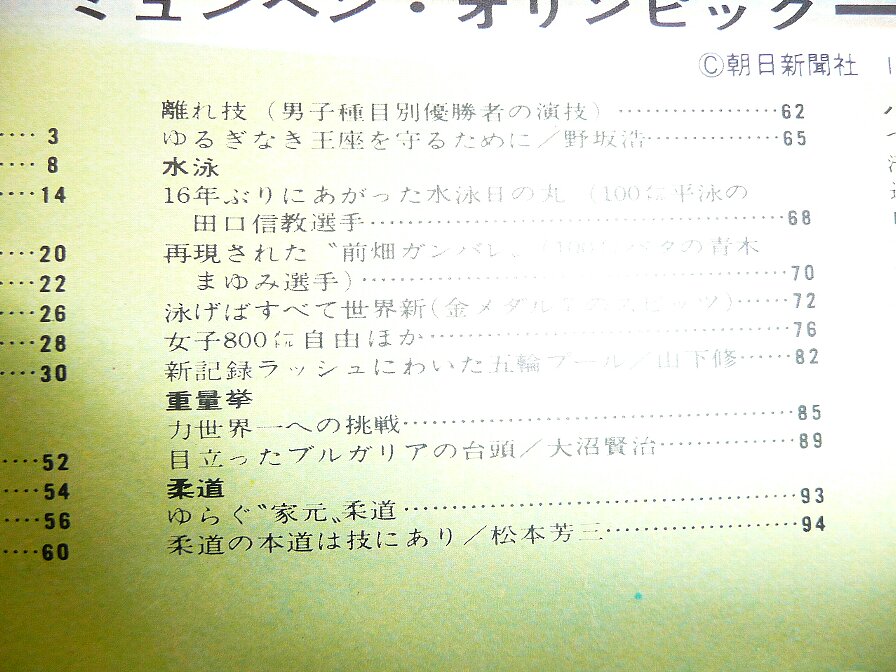 ミュンヘン・オリンピック
©朝日新聞社
3
8
14
20
22
26
28
30
52
54
56
60
離れ技（男子種目別優勝者の演技）……………62
ゆるぎなき王座を守るために／野坂浩……………65
水泳
16年ぶりにあがった水泳日の丸（100㍍平泳の
田口信教選手……………68
再現された〝前畑ガンバレ〟（100㍍バタの青木
まゆみ選手）……………70
泳げばすべて世界新（金メダル7のスピッツ）……72
女子800㍍自由ほか……………76
新記録ラッシュにわいた五輪プール／山下修……82
重量挙
力世界一への挑戦……………85
目立ったブルガリアの台頭／大沼賢治……………89
柔道
ゆらぐ〝家元〟柔道……………93
柔道の本道は技にあり／松本芳三……………94